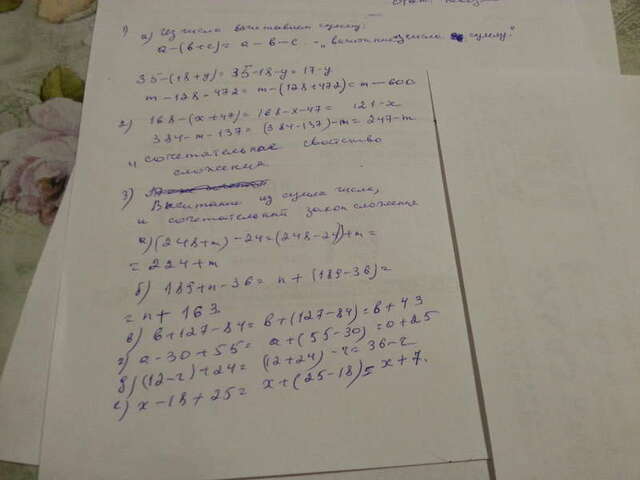 1) а) Из числа вычитаем сумму:
а-(в+с)= а-в-с - „вычитание из числа сумму."
35-(18+y)=35-18-y=17-y
m-128-472= m-(128+472)=m-600
2) 168-(x+47)=168-x-47= 121-x
384-m-137=(384-137)-m=247-m
и сочетательное свойство
сложения
3)
Вычитание из суммы числа,
и сочетательный закон сложения
а)(248+m)-24=(248-24)+m=
=224+m
б) 189+n-36= n+(189-36)=
=n+163
в) b+127-84= b+(127-84)=b+43
г) a-30+55= a+(55-30)=a+25
д)(12-r)+24= (12+24)-r=36-r
е) x-18+25= x+(25-18)= x+7.